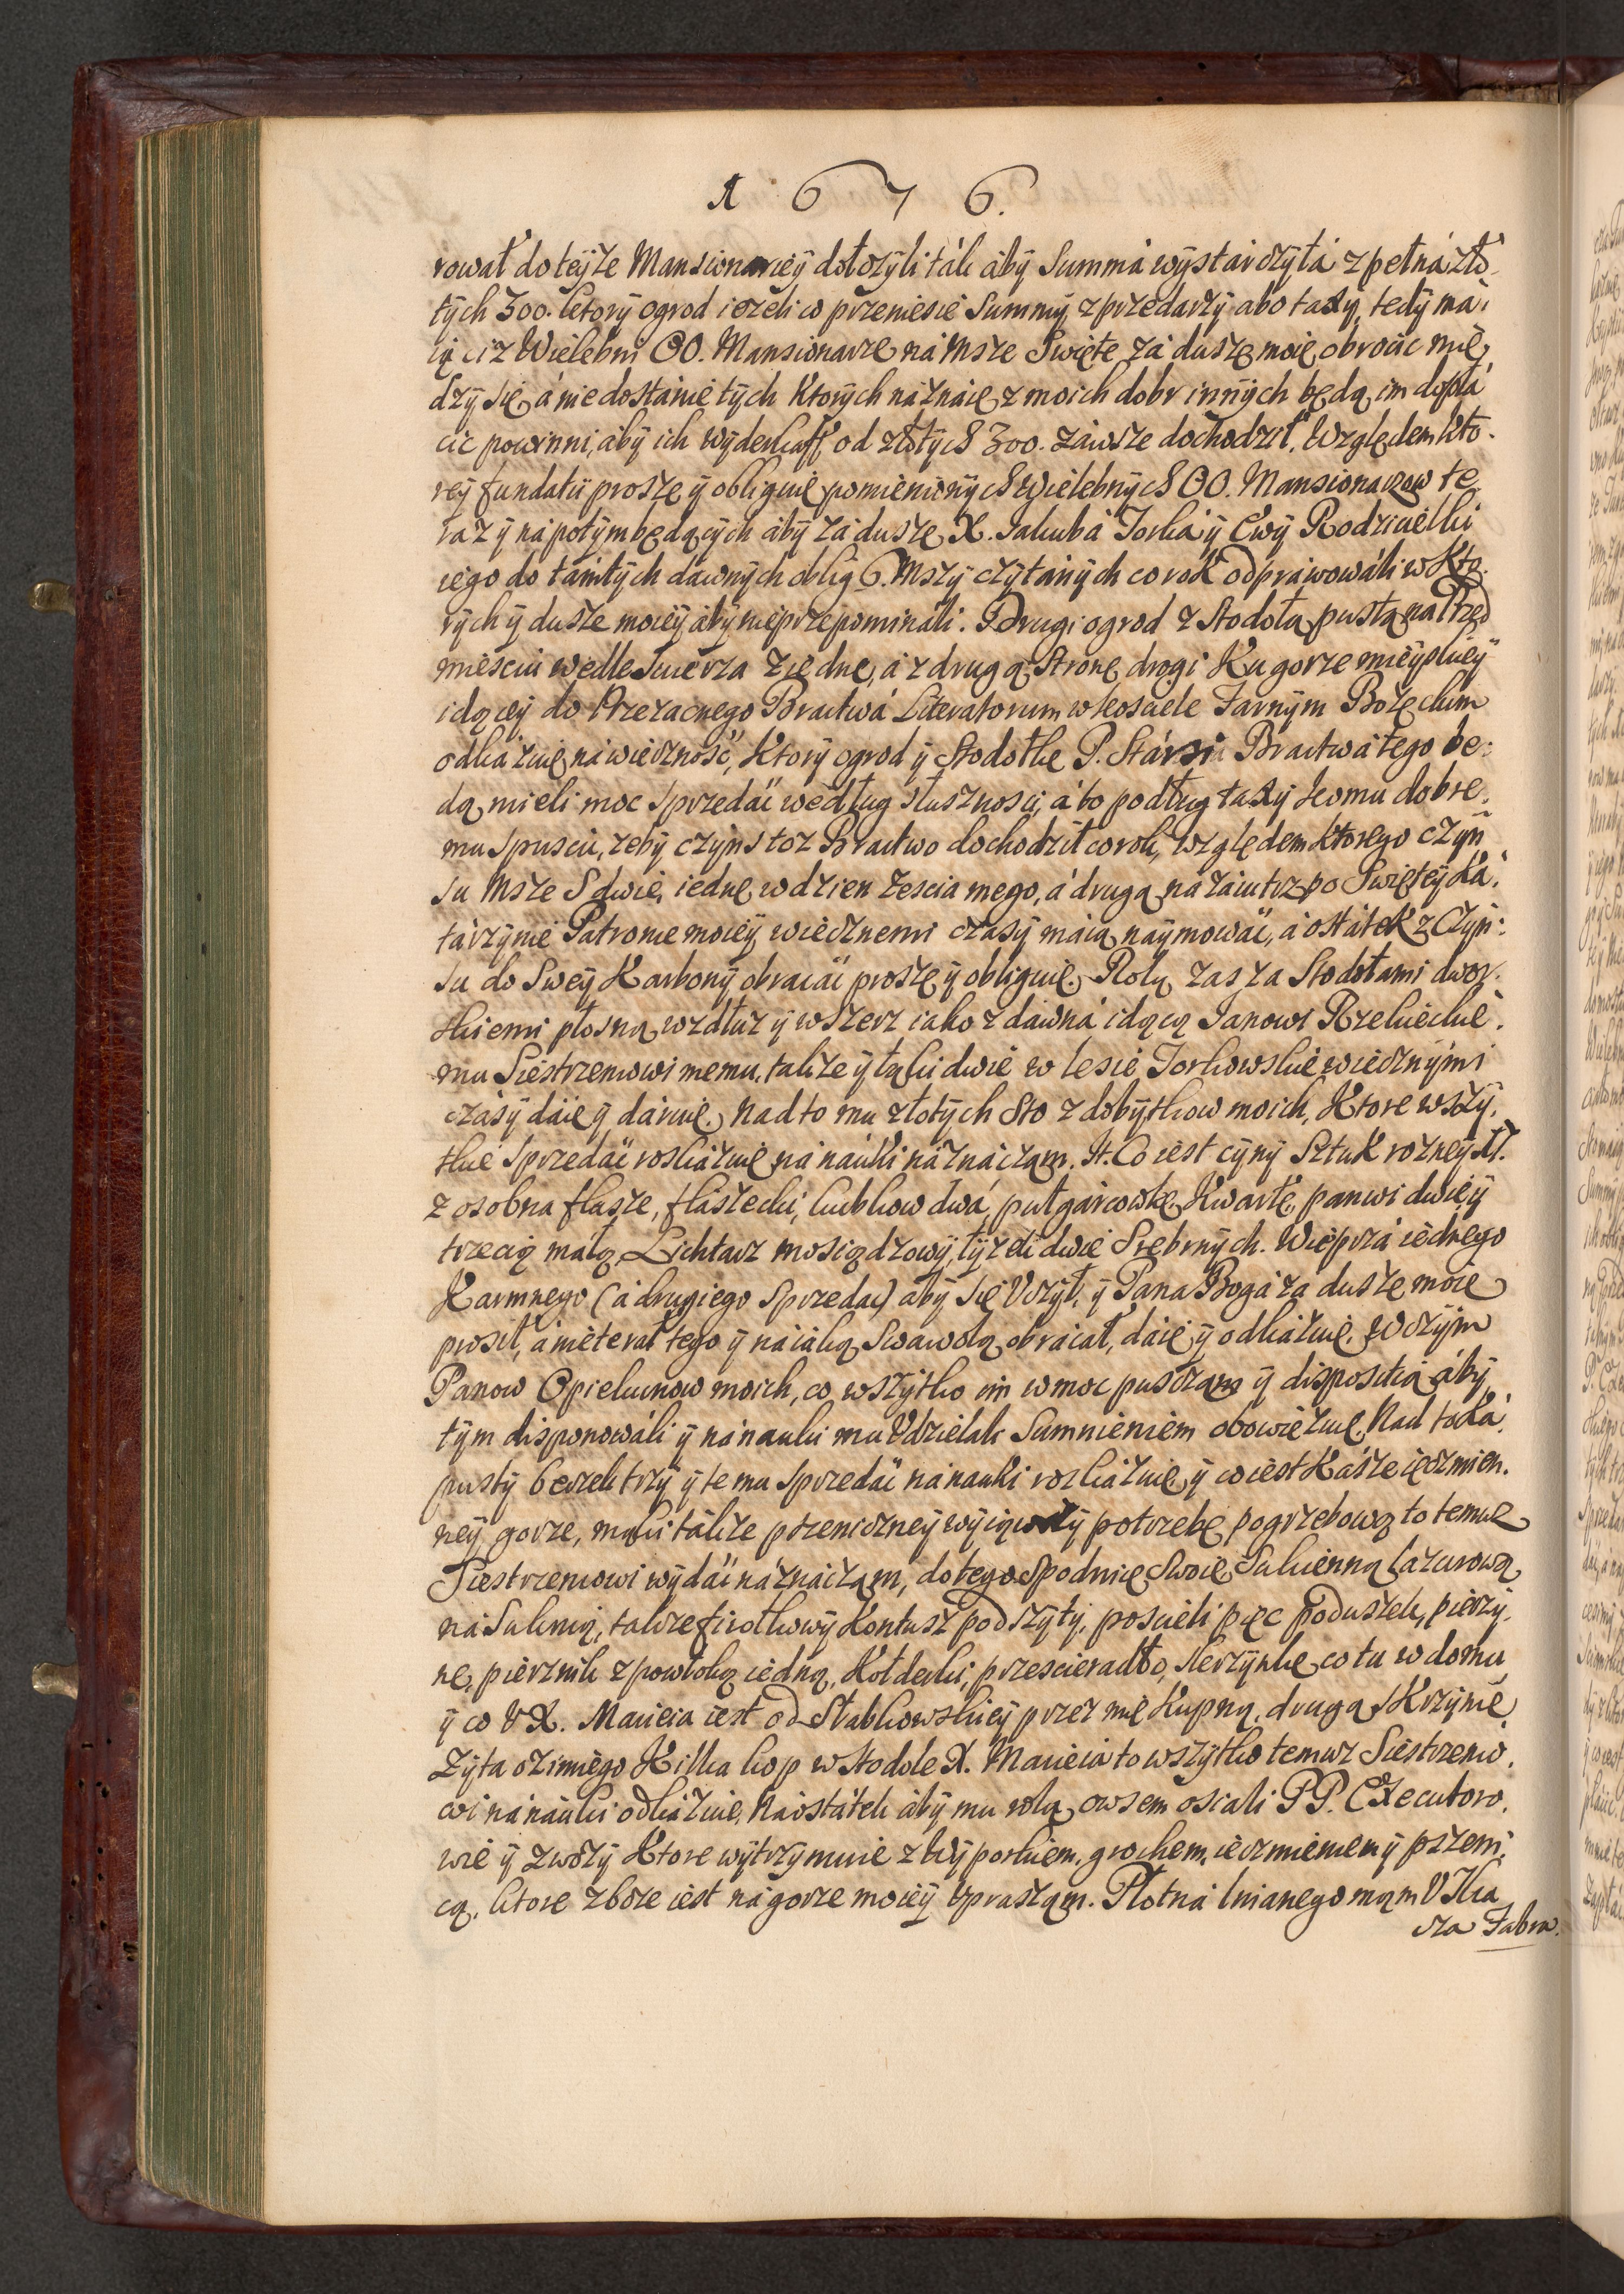 1 6 7 6.
rował do teÿże Mansionarieÿ dołożÿli ták ábÿ Summá wÿstárczÿłá zpełná zło-
tÿch 300. ktorÿ ogrod ieżeli co przeniesie Summÿ, zprzedarzÿ abo taxÿ, tedÿ má-
ią ciż Wielebni OO. Mansionarze ná Msze Swięte zá duszę moię obrocic mię-
dzÿ się, á nie dostánie tÿch Ktorÿch náznáię z moich dobr innÿch będą im dopłá
cic powinni, ábÿ ich wÿderkaff od złotÿch 300. záwsze dochodził. Względem kto-
reÿ fundatii proszę ÿ obliguię pomienionÿch Wielebnÿch OO. Mansionarzow te
raz ÿ nápotÿmbędącÿch ábÿ zá duszę X. Jakubá Jorká ÿ Ewÿ Rodzicielki
iego do támtÿch dáwnÿch oblig 6. Mszÿ czÿtánÿch co rok odpráwowáli w Kto-
rÿch ÿ dusze moieÿ ábÿ nieprzepomináli. Drugi ogrod z Stodołą pustą ná Przed
miesciu wedle Swierza z iedne, á z drugą Stronę drogi Ku gorze mieÿskieÿ
idąceÿ do Przezacnego Bractwá Literatorum w kosciele Farnÿm Bożęckim
odkázuię ná wieczność, Ktorÿ ogrod ÿ Stodołkę P. Stársi Bractwá tego bę-
dą mieli moc sprzedáć według słusznosci, ábo podług taxÿ komu dobre-
mu spuscić, żebÿ czÿns toż Bractwo dochodził corok, względem ktorego czÿn
su Msze S dwie, iednę w dzien ześcia mego, á drugą ná záiutrz po Swięteÿ Ká-
tárzÿnie Patronie moieÿ wiecznemi czásÿ máią náÿmowáć, á ostátek z Czÿn-
su do Sweÿ Karbonÿ obracáć proszę ÿ obliguię. Rolą zas za Stodołami dwor-
skiemi płosną wzdłuż ÿ wszerz iako z dawná idącą Janowi Rzekieckie-
mu Siestrzencowi memu, także ÿ łąki dwie w lesie Jorkowskie wiecznÿmi
czásÿ dáię ÿ dáruię. Nad to mu złotÿch Sto z dobÿtkow moich, Ktore wszÿ-
tkie Sprzedáć roskázuię ná náuki náznáczam. It. Co iest cÿnÿ Sztuk rożneÿ xt.
z osobna flasze, flaszecki, kubkow dwá, pułgárcowkę, Kwartę, panwi dwie, ÿ
trzecią małą, Lichtarz mosiądzowÿ, łÿżek dwie Srebrnÿch. Wieprzá iednego
Karmnego (á drugiego Sprzedac) abÿ się Uczÿł, ÿ Pana Bogá za duszę moię
prosił, á nieterał tego ÿ ná iáką Swawolą obracał, dáię ÿ odkázuię. W czÿm
Panow Opiekunow moich, co wszÿtko im w moc pusczam ÿ disposicią ábÿ
tÿm disponowáli ÿ ná nauki mu Udzielali Sumnieniem obowięzuię. Nad to Ká-
pustÿ beczek trzÿ ÿ te mu sprzedáć ná nauki roskázuię, ÿ co iest Kásze ięczmien-
neÿ gorze, mąki tákże pszeniczneÿ wÿiąwszÿ potrzebę pogrzebową to temuż
Siestrzencowi wÿdáć náznáczam, do tego Spodnicę Swoię Sukienną lazurową
ná Suknią, także fiołkowÿ Kontusz podszÿtÿ, poscieli pięc poduszek, pierzÿ-
nę, pierznik z powłoką iedną, Kołdecki, przescieradło, skrzÿnkę co tu w domu
ÿ co U X. Maciecia iest od Stabkowskieÿ przez mię Kupną, drugą Skrzÿnię,
Zÿta ozimiego Kilka kop w Stodole X. Macieia to wszÿtko temuz Siestrzenco-
wi ná náuki odkázuię. Náostátek ábÿ mu rolą owsem osiali PP. Executoro-
wie ÿ zwożÿ Ktore wÿtrzÿmuie z Wÿporkiem, grochem, ięczmieniem ÿ pszeni-
cą, ktore zboże iest ná gorze moieÿ Upraszam. Płotná lnianego mam U Tka
cza Fabra.